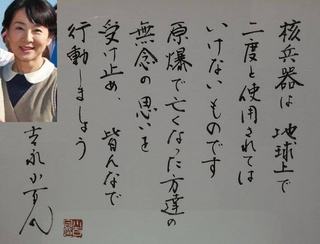 核兵器は 地球上で
二度と使用されては
いけないものです
原爆で亡くなった方達の
無念の思いを
受け止め、皆んなで
行動しましょう
吉永小百合